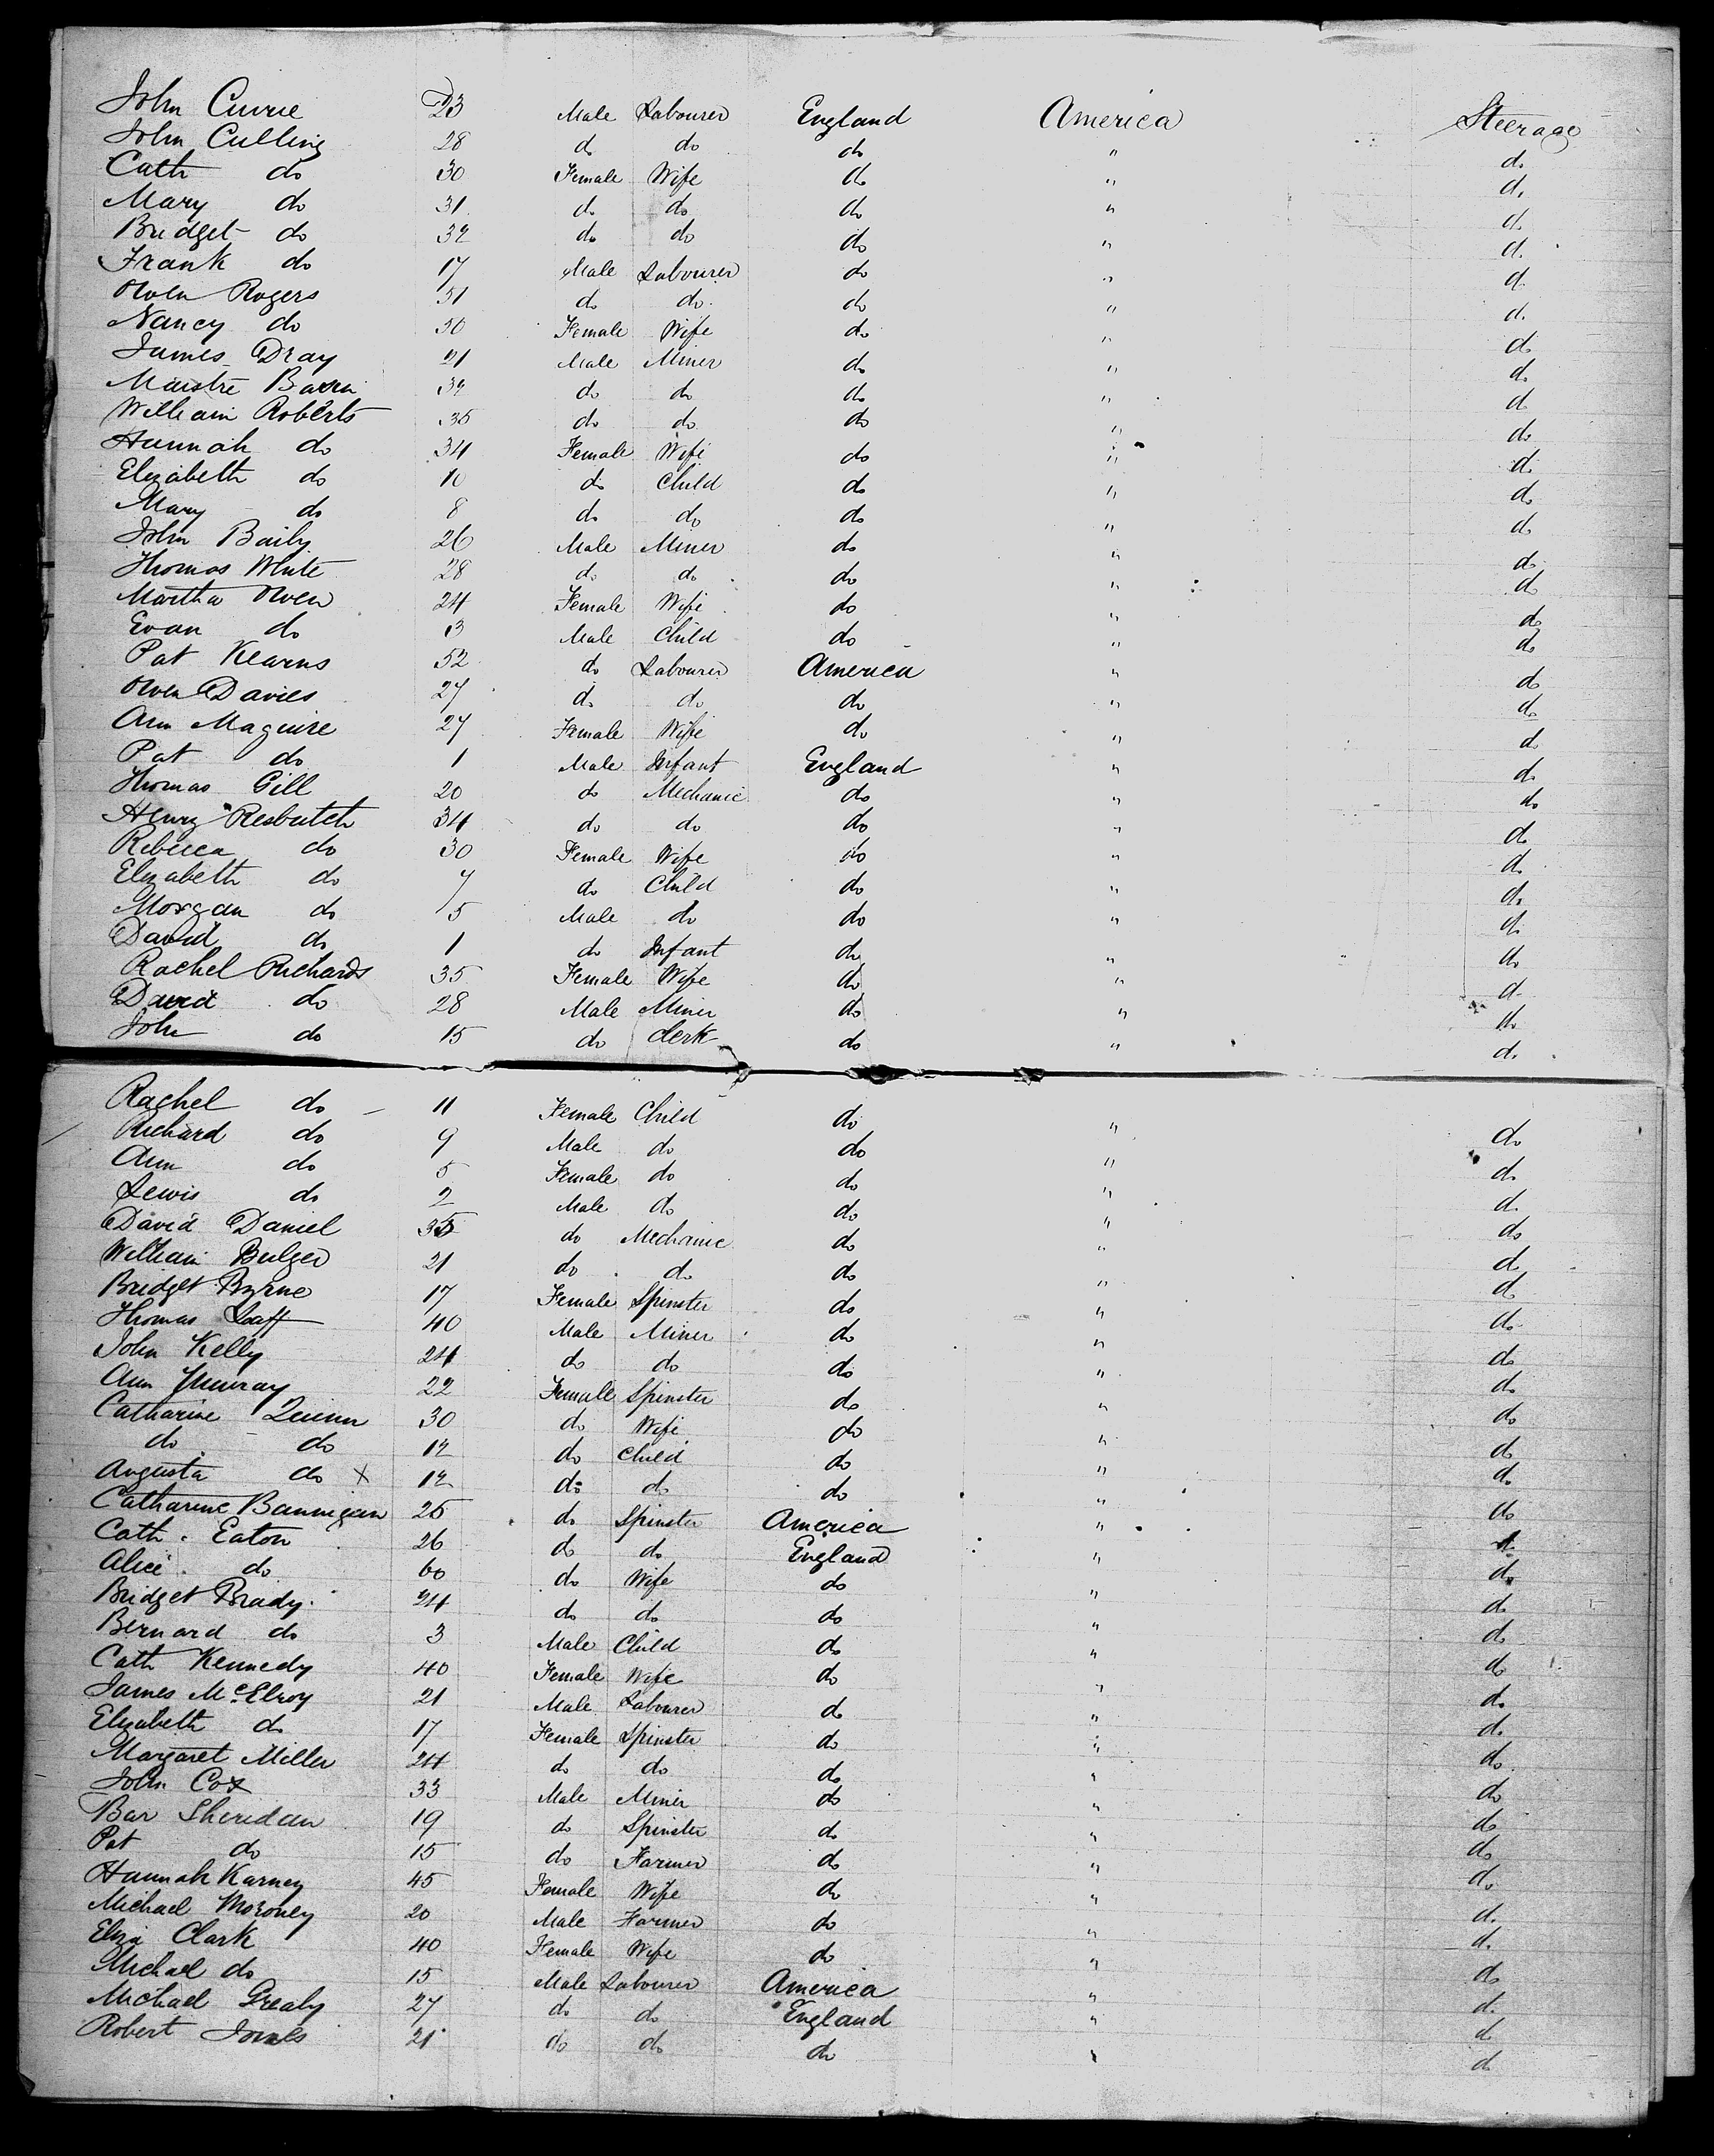 John Currie 23 Male Labourer England America Steerage
John Culling 28 do do do " do
Cath do 30 Female Wife do " do
Mary do 31 do do do " do
Bridget do 32 do do do " do
Frank do 17 Male Labourer do " do
Owen Rogers 51 do do do " do
Nancy do 50 Female Wife do " do
James Dray 21 Male Miner do " do
32 do do do " do
William Roberts 35 do do do " do
Hannah do 34 Female Wife do " do
Elizabeth do 10 do Child do " do
Mary do 8 do do do " do
John Baily 26 Male Miner do " do
Thomas White 28 do do do " do
Martha Owen 24 Female Wife do " do
Evan do 3 Male Child do " do
Pat Kearns 52 do Labourer America " do
Owen Davies 27 do do do " do
Ann Maguire 27 Female Wife do " do
Pat do 1 Male Infant England " do
Thomas Gill 20 do Mechanic do " do
Henry Resbutch 34 do do do " do
Rebecca do 30 Female Wife do " do
Elizabeth do 7 do Child do " do
Morgan do 5 Male do do " do
David do 1 do Infant do " do
Rachel Richards 35 Female Wife do " do
David do 28 Male Miner do " do
John do 15 do Clerk do " do
Rachel do 11 Female Child do " do
Richard do 9 Male do do " do
Ann do 5 Female do do " do
Lewis do 2 Male do do " do
David Daniel 35 do Mechanic do " do
William Bulger 21 do do do " do
Bridget Byrne 17 Female Spinster do " do
Thomas Laff 40 Male Miner do " do
John Kelly 24 do do do " do
Ann Murray 22 Female Spinster do " do
Catharine Quinn 30 do Wife do " do
do do 12 do Child do " do
Augusta do x 12 do do do " do
Catharine Bannigan 25 do Spinster America " do
Cath. Eaton 26 do do England " do
Alice do 60 do Wife do " do
Bridget Brady 24 do do do " do
Bernard do 3 Male Child do " do
Cath Kennedy 40 Female Wife do " do
James McElroy 21 Male Labourer do " do
Elizabeth do 17 Female Spinster do " do
Margaret Miller 24 do do do " do
John Cox 33 Male Miner do " do
Bar Sheridan 19 do Spinster do " do
Pat do 15 do Farmer do " do
Hannah Karney 45 Female Wife do " do
Michael Moroney 20 Male Farmer do " do
Eliza Clark 40 Female Wife do " do
Michael do 15 Male Labourer America " do
Michael Grealy 27 do do England " do
Robert Jones 21 do do do " do